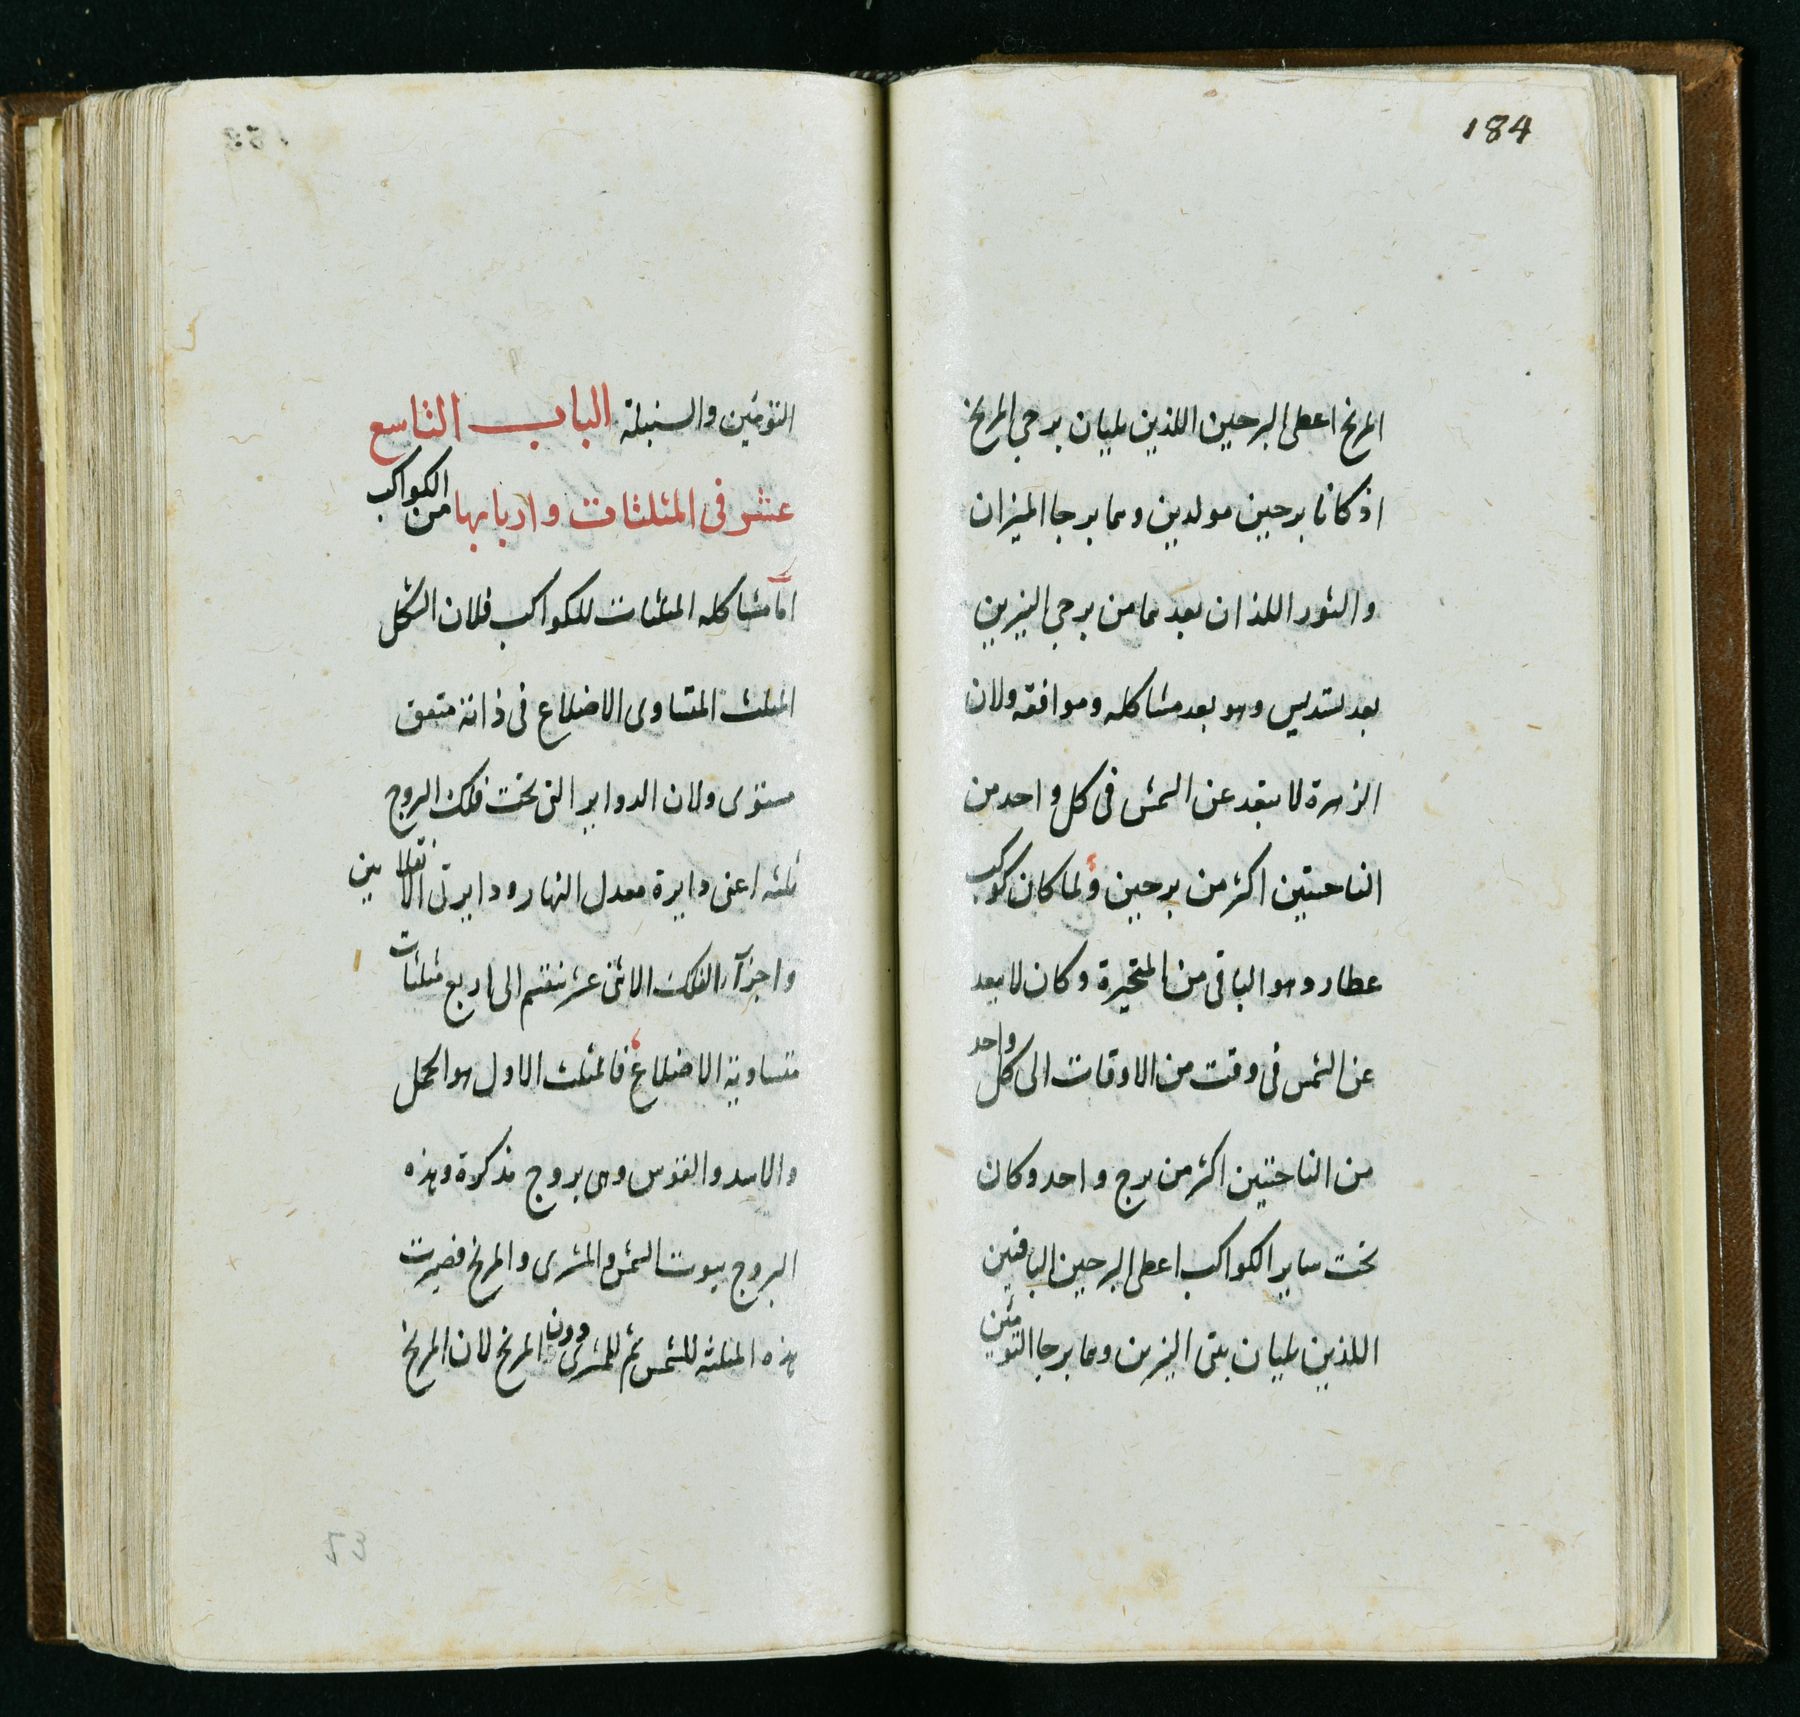 184
المريخ اعطى البرجين اللذين يليان برجي المريخ
اذ كانا برجين مولدين وهما برجا الميزان
والثور اللذان بعدهما من برجي النيرين
بعد تسديس وهو بعد مشاكله وموافقه ولان
الزهرة لا تبعد عن الشمس في كل واحد من
الناحيتين اكثر من برجين ولما كان كوكب
عطارد هو الباقي من المتحيرة وكان لا يبعد
عن الشمس في وقت من الاوقات الى كل واحد
من الناحيتين اكثر من برج واحد وكان
تحت ساير الكواكب اعطى البرجين الباقيين
اللذين يليان بيتي النيرين وهما برجا التومين
التومين والسنبلة الباب التاسع
عشر في المثلثات واربابها من الكواكب
اما مشاكله المثلثات للكواكب فلان الشكل
المثلث المتساوى الاضلاع في ذاته متفق
مستوى ولان الدواير التي تحت فلك البروج
ثلثه اعنى دايرة معدل النهار ودايرتي الانقلابين
واجزآء الفلك الاثنى عشر تنقسم الى اربع مثلثات
متساوية الاضلاع فالمثلث الاول هو الحمل
والاسد والقوس وهى بروج مذكرة وهذه
البروج بيوت الشمس والمشترى والمريخ فصيرت
هذه المثلثه للشمس ثم للمشترى دون المريخ لان المريخ